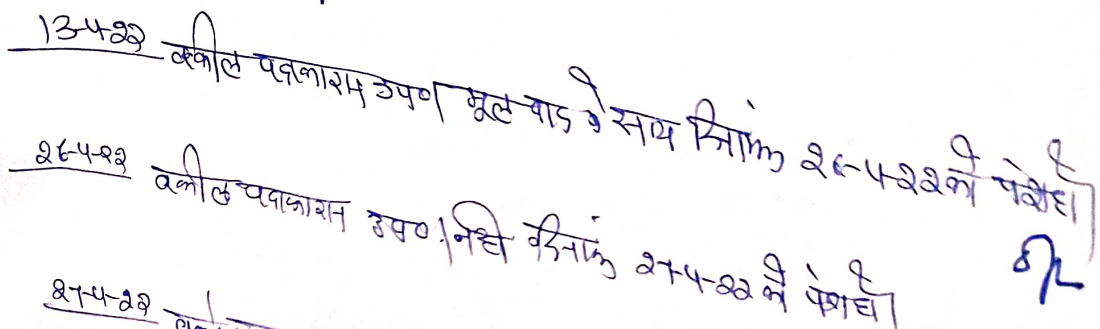 13-4-22 वकील पक्षकारान उप० मूल वाद के साथ दिनांक 26-4-22 को पेश हो।
26-4-22 वकील पक्षकारान उप०। दिनांक 27-4-22 को पेश हो।
27-4-22